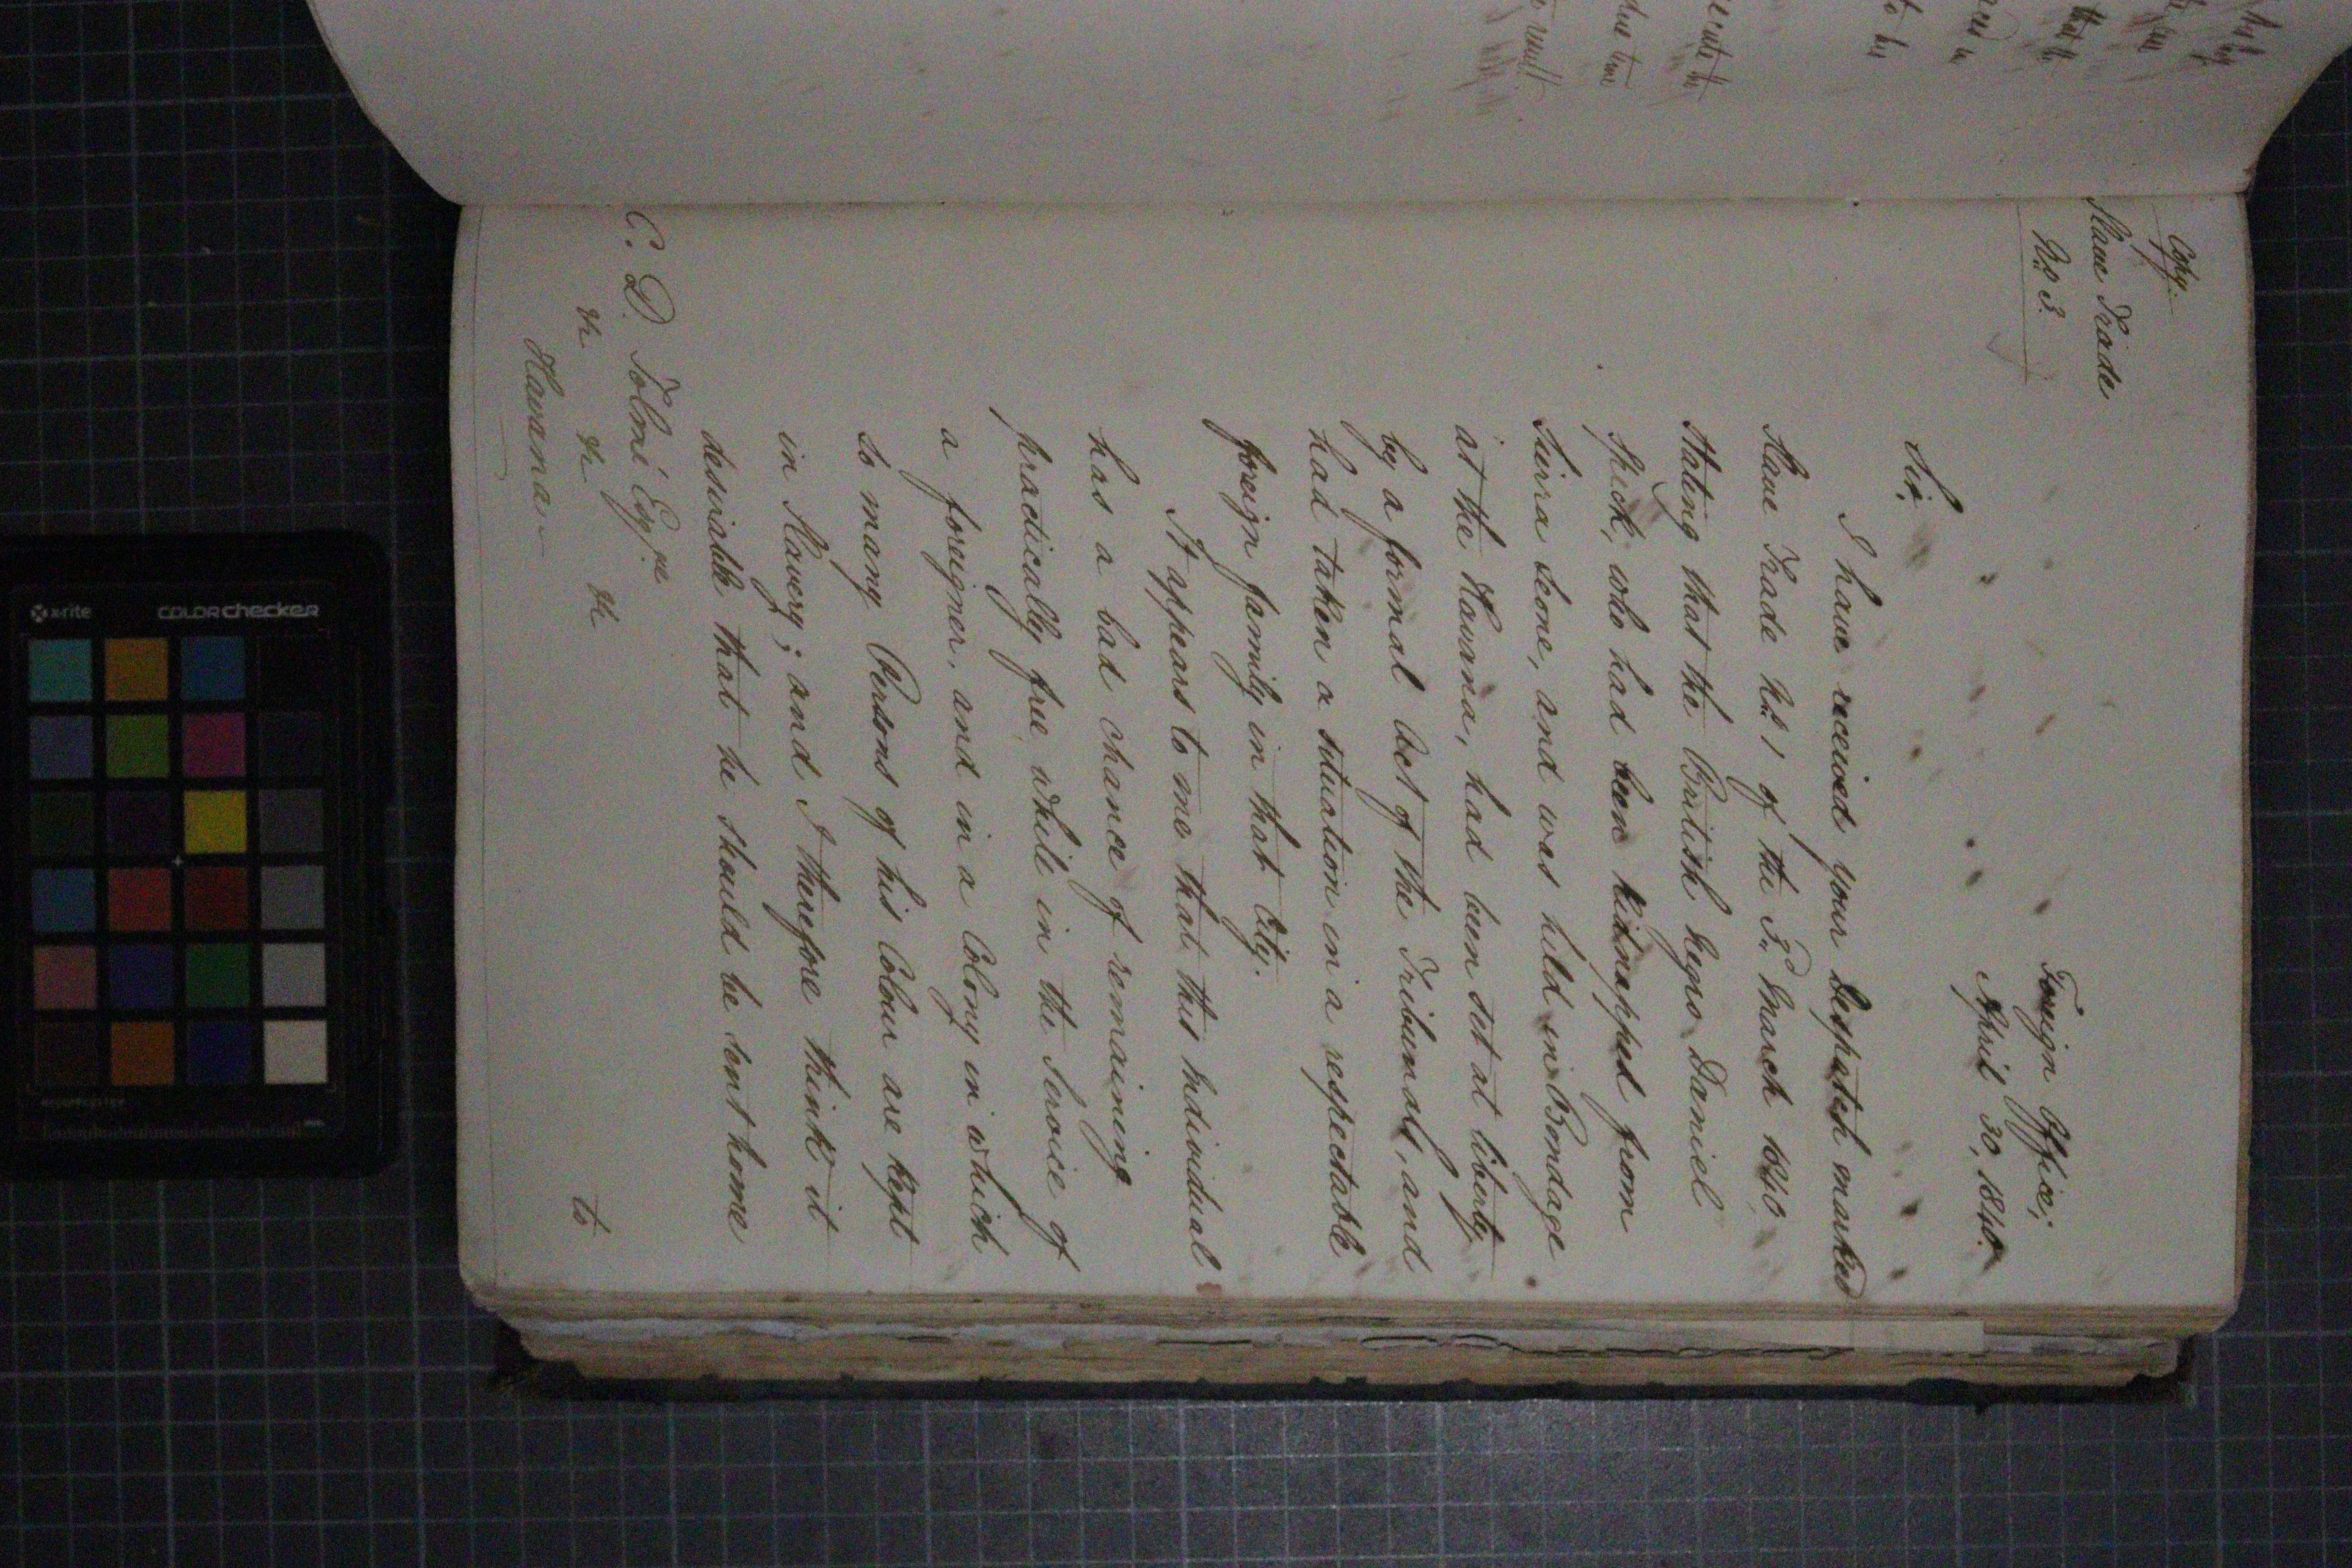 Copy.
Slave Trade
No. 3.
Foreign Office,
April 30, 1840.
Sir,
I have received your Despatch marked
Slave Trade No. 1 of the 3d. March 1840,
Stating that the British Negro, Daniel
Speck, who had been kidnapped from
Sierra Leone, and was held in Bondage
at the Havana, had been set at liberty
by a formal Act of the Tribunals, and
had taken a situation in a respectable
foreign family in that City.
It appears to me that this Individual
has a bad chance of remaining
practically free, while in the Service of
a foreigner, and in a Colony in which
so many Persons of his Colour are kept
in Slavery; and I therefore think it
desirable that he should be sent home
to
C. D. Tolmé Esqre.
&c &c &c
Havana
x-rite
colorchecker